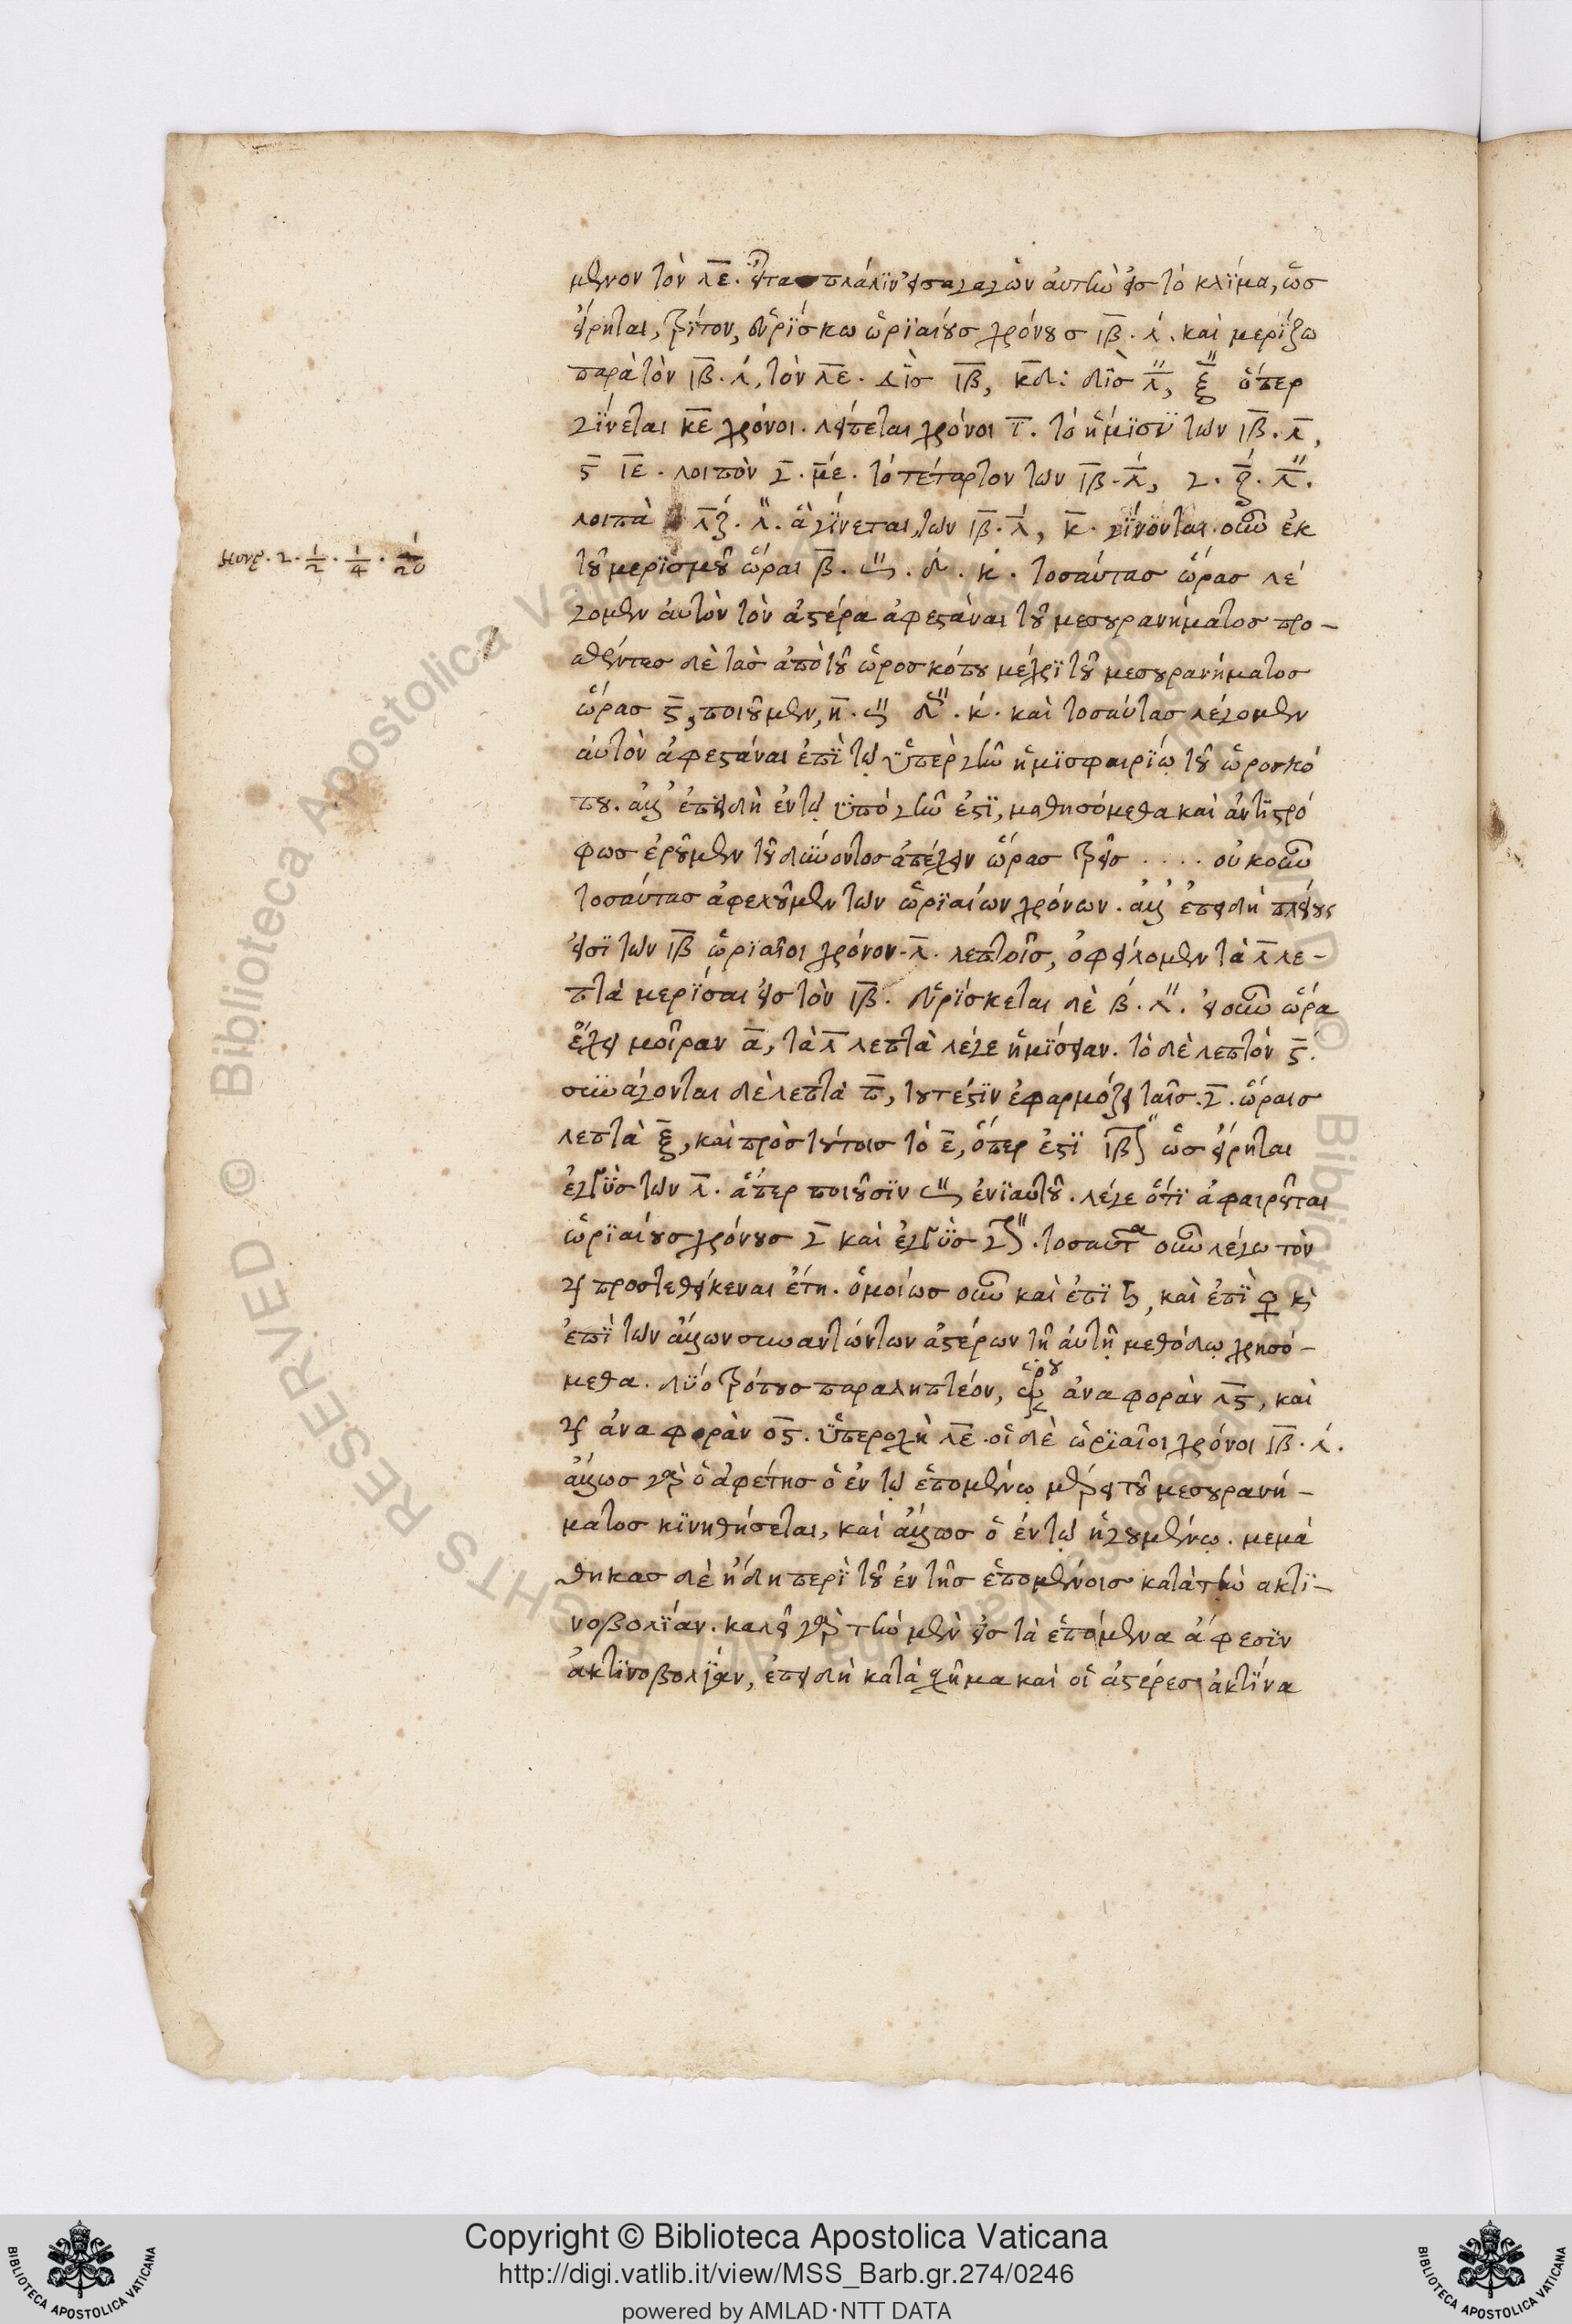 μενον τὸν λ̅ε̅. εἶτα πάλιν εἰσαγαγὼν αὐτὴν εἰς τὸ κλΐμα, ὡς
εἴρηται, τρίτον, εὑρΐσκω ὡρϊαίους χρόνους ι̅β̅. λ́. καὶ μερΐζω
παρὰ τὸν ι̅β̅. λ́, τὸν λ̅ε̅. δὶς ι̅β̅, κ̅δ̅: δὶς λ̅̎, ξ̅̎ ὅπερ
γΐνεται κ̅ε̅ χρόνοι. λείπεται χρόνοι ι̅. τὸ ἥμϊσϋ των ι̅β̅. λ̅,
ϛ̅ ι̅ε̅. λοιπὸν γ̅. μ̅έ. τὸ τέταρτον των ι̅β̅. λ̅́, γ. ζ̅́. λ̅̎.
λοιπὰ λ̅ζ́. λ̎. ἃ γΐνεται, των ι̅β̅. λ̅́, κ̅. γΐνονται οὖν ἐκ
τοῦ μερϊσμοῦ ὧραι β̅. 𐅵̎. δ. κ́. τοσαύτας ὥρας λέ
γομεν αὐτὸν τὸν ἀστέρα ἀφεστάναι τοῦ μεσουρανήματος προ–
σθέντες δὲ τὰς ἀπὸ τοῦ ὡροσκόπου μέχρϊ τοῦ μεσουρανήματος
ὥρας ϛ̅, ποιοῦμεν, η̅. 𐅵̎ δ̎. κ́. καὶ τοσαύτας λέγομεν
αὐτὸν ἀφεστάναι ἐπῒ τῳ ὑπὲρ γῆν ἡμϊσφαιρΐῳ τοῦ ὡροσκό
που. ἀλλ᾽ ἐπειδὴ ἐν τῳ ὑπὸ γῆν ἐστϊ, μαθησόμεθα καὶ ἀντϊστρό
φως ἐροῦμεν τοῦ δύνοντος ἀπέχειν ὥρας τρεῖς . . . . οὐκοῦν
τοσαύτας ἀφελοῦμεν των ὡρϊαίων χρόνων. ἀλλ᾽ ἐπειδὴ πλείους
εἰσϊ των ι̅β̅ ὡρϊαῖοι χρόνον. λ̅. λεπτοῖς, ὀφείλομεν τὰ λ̅ λε–
πτὰ μερΐσαι εἰς τὸν ι̅β̅. εὑρΐσκεται δὲ β́. λ̎. εἰ οὖν ὥρα
ἔχει μοῖραν α̅, τὰ λ̅ λεπτὰ λέγε ἡμΐσειαν. τὸ δὲ λεπτὸν ϛ̅.
συνάγονται δὲ λεπτὰ π̅, τουτέστϊν ἐφαρμόζει ταῖς. γ̅. ὥραις
λεπτὰ ξ̅, καὶ πρὸς τούτοις τὸ ε̅, ὅπερ ἐστϊ ι̅β̅̎ ὡς εἴρηται
ἐγγῢς των λ̅. ἅπερ ποιοῦσϊν 𐅵̎ ἐνϊαυτοῦ. λέγε ὅτϊ ἀφαιρεῖται
ὡρϊαίους χρόνους γ̅ καὶ ἐγγῢς γ̎. τοσαῦτα οὖν λέγω τὸν
♃ προστεθεικέναι ἔτη. ὁμοίως οὖν καὶ ἐπϊ ♄, καὶ ἐπῒ ♀ κὶ
ἐπῒ των ἄλλων συναντώντων ἀστέρων τῇ αὐτῇ μεθόδῳ χρησό–
μεθα. δϋό τρόπους παραληπτέον, ἀναφορὰν λ̅ϛ̅, καὶ
♃ ἀναφορὰν ο̅ϛ̅. ὑπεροχὴ λ̅ε̅. οἱ δὲ ὡρϊαῖοι χρόνοι ι̅β̅. λ́.
ἄλλως γὰρ ὁ ἀφέτης ὁ ἐν τῳ ἑπομένῳ μέρει τοῦ μεσουρανή–
ματος κϊνηθήσεται, καὶ ἄλλως ὁ ἐν τῳ ἡγουμένῳ. μεμά
θηκας δὲ ἤδη περῒ τοῦ ἐν τῇς ἑπομένοις κατὰ τὴν ακτϊ–
νοβολΐαν. καλεῖ γὰρ τὴν μὲν εἰς τὰ ἑπόμενα ἄφεσϊν
ἀκτϊνοβολΐαν, ἐπειδὴ κατὰ σχῆμα καὶ οἱ ἀστέρες ἀκτΐνα
γ. 1/2. 1/4. 1/20
Copyright © Biblioteca Apostolica Vaticana
http://digi.vatlib.it/view/MSS_Barb.gr.274/0246
powered by AMLAD·NTT DATA
BIBLIOTECA APOSTOLICA VATICANA
BIBLIOTECA APOSTOLICA VATICANA